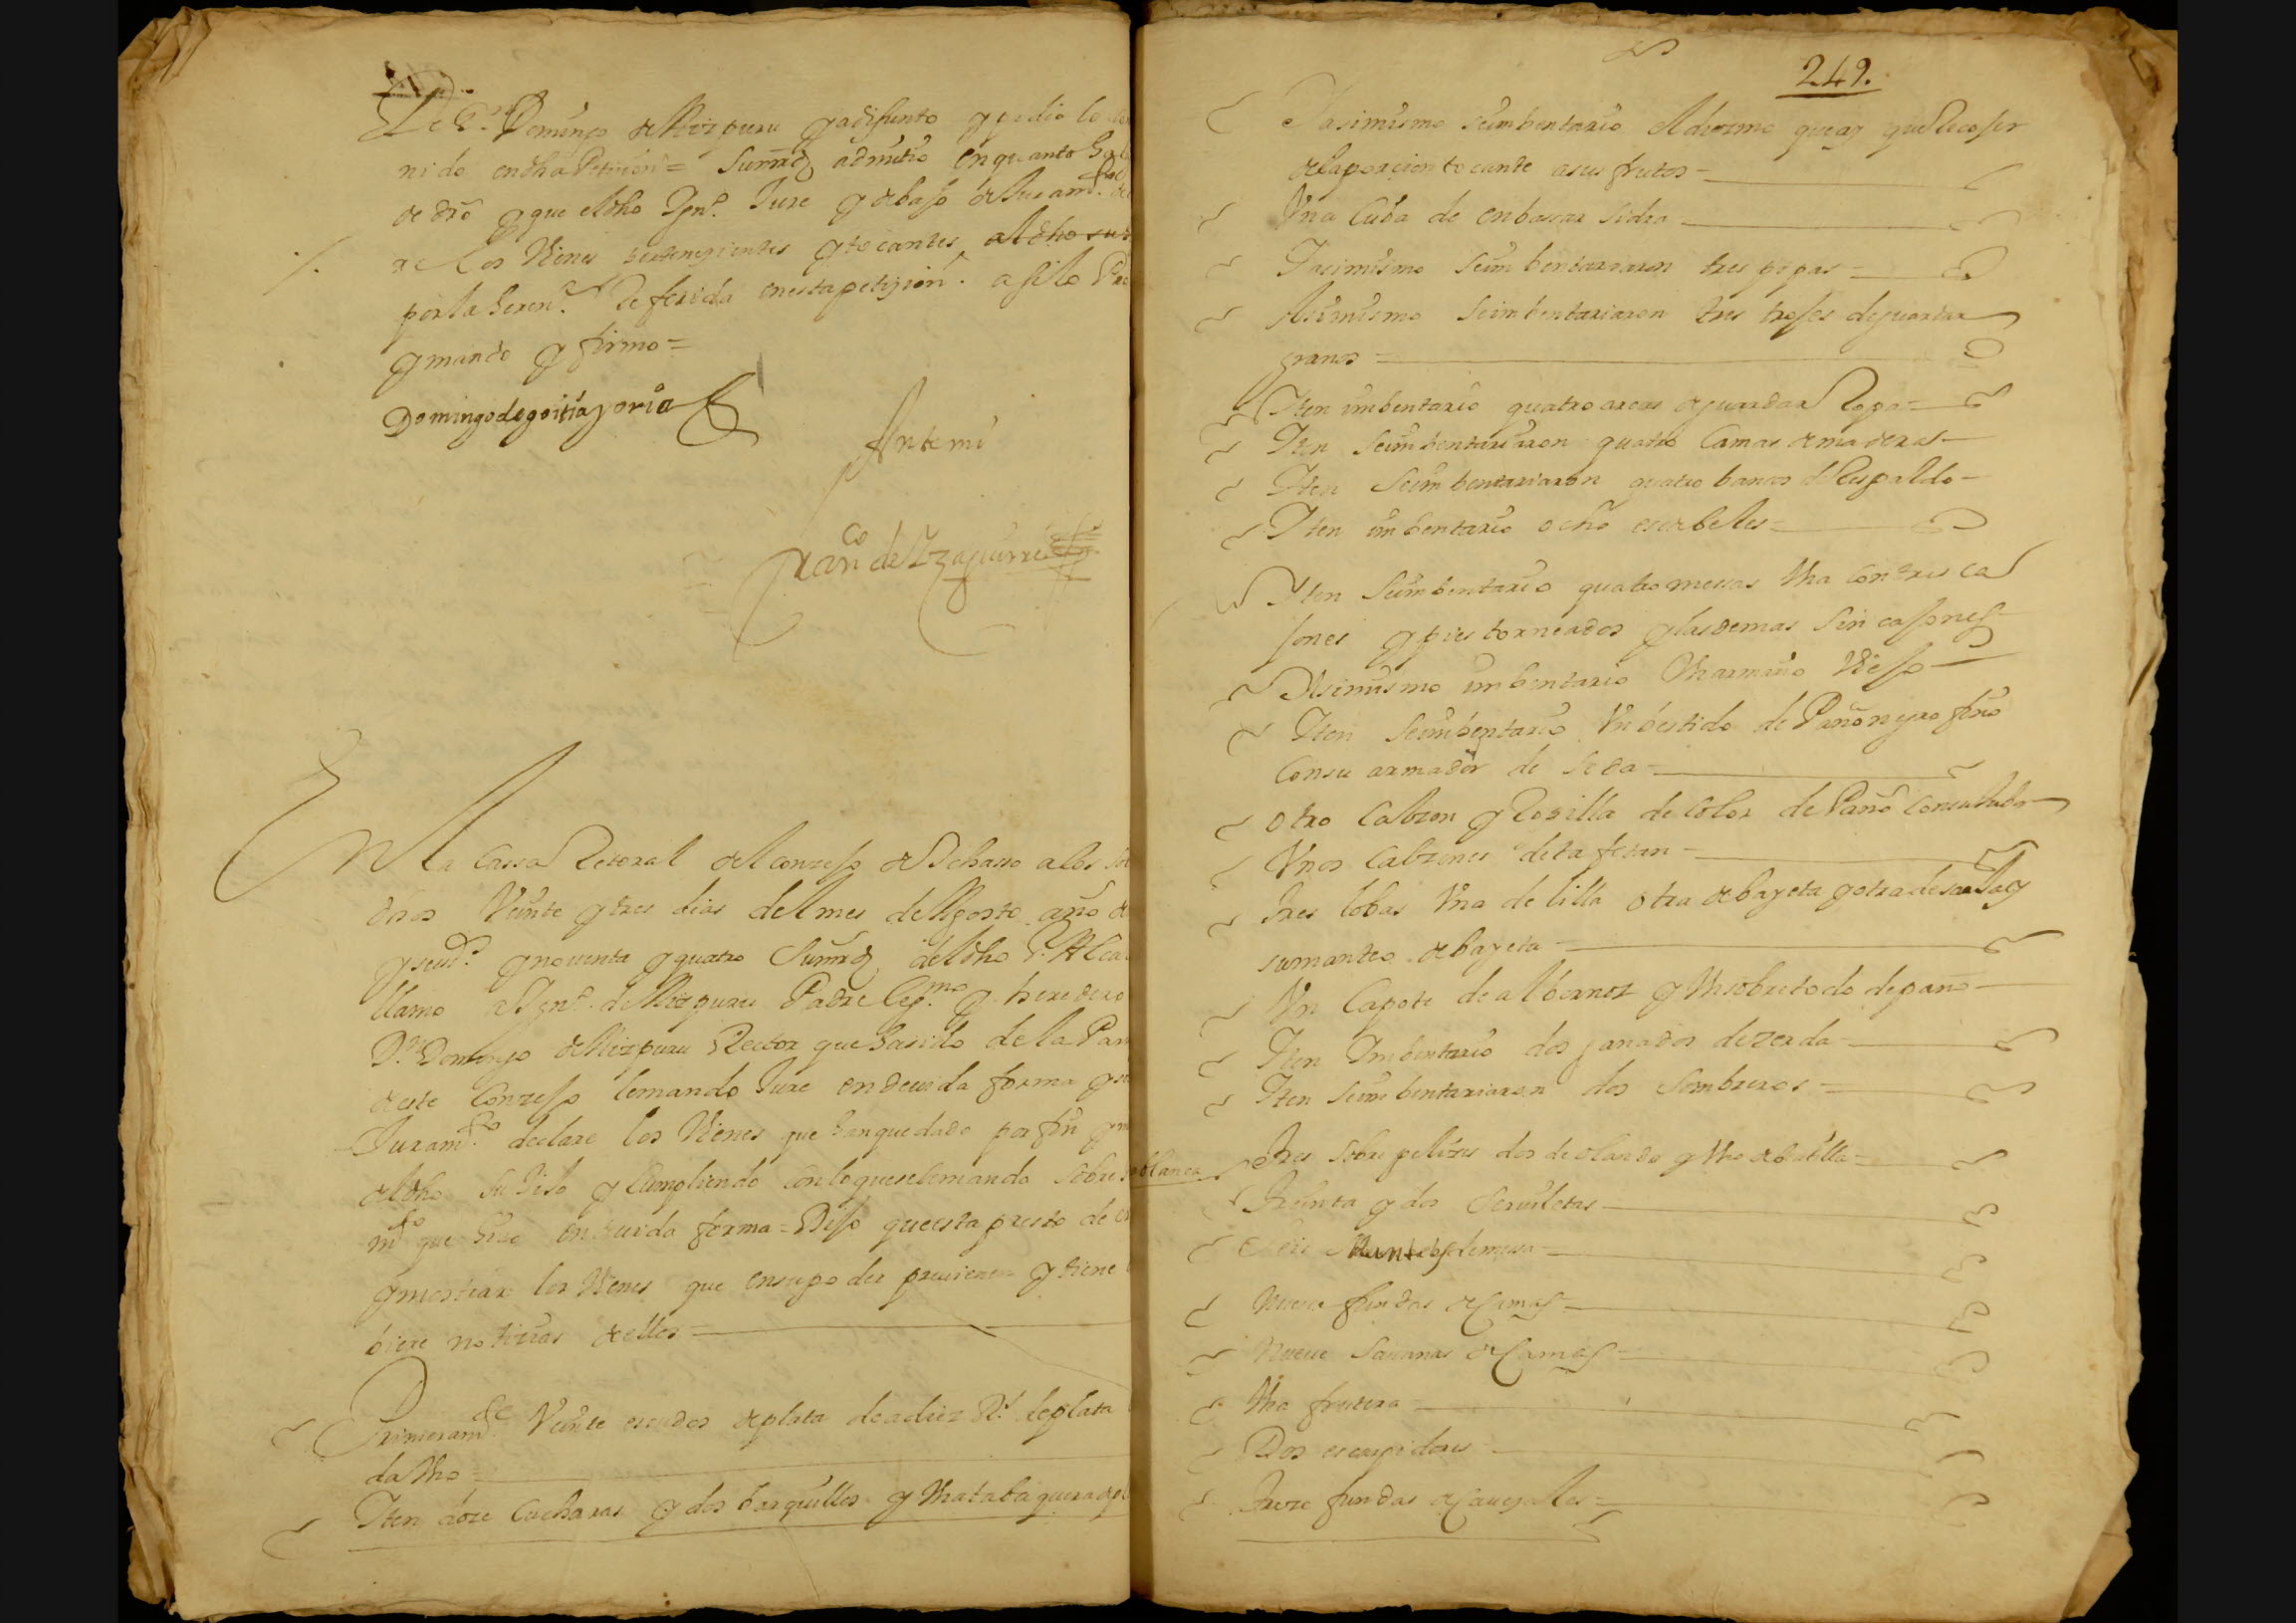 de D.n Domingo de Aizpuru ya difunto y pidio lo
nido en dha Petizion = Sumrd admitio en quanto ha
de dro y que el dho Ign.o Jure y debajo de Juram.to
los Vienes pertenezientes y tocantes al dho
por la heren.a Referida en esta petizion. asi lo
y mando y firmo =
Domingo de goitia y oria
Ante mi
Fran.co de Yzaguirre
En la Cassa Retoral del conzejo de a los
dhos Veinte y tres dias del mes de Agosto año de
y seis.o y nouenta y quatro Sumrd del dho S.r Alcal
llamo a Ign.o de Aizpuru Padre leg.mo y heredero
D.n Domingo de Aizpuru Rector que ha sido de la Par
de este Conzejo le mando Jure en deuida forma y
Juram.to declare los Vienes que han quedado por fin y
del dho su hijo y Cumpliendo con lo que se le mando sobre
m.to que hizo en deuida forma = Dijo que esta presto de
y mostrar los Vienes que en su poder y tiene
biere notizias de ellos
Primeram.te Veinte escudos de plata de a diez R.s de plata
da Vno =
Iten doze Cucharas y dos barquillos y Vna tabaquera de pl
249.
Y asimismo se imbentario el diezmo que ay que Recojer
de la porcion tocante a sus frutos =
Vna Cuba de enbasar sidra
Y asimismo se imbentariaron tres pipas =
Asimismo se imbentariaron tres trojes de guardar
granos =
Iten imbentario quatro arcas de guardar Ropa =
Iten se imbentariaron quatro Camas de maderas
Iten se imbentariaron quatro bancos de Respaldo
Iten imbentario ocho escabeles =
Iten se imbentario quatro messas Vna con tres ca
jones y pies torneados y las demas sin cajones
Asimismo imbentario Vn armario Viejo
Iten se imbentario Vn bestido de Paño negro fino
Con su armador de seda =
Otro Calzon y Ropilla de Color de Paño
Vnos Calzones de tafetan =
Tres lobas Vna de lilla otra de bayeta y otra de y
su manteo de bayeta =
Vn Capote de albornoz y Vn sobretodo de paño
Iten Imbentario dos ganados de zerda
Iten se imbentariaron dos sombreros =
blanca
Tres sobrepellizes dos de olanda y Vno de Batilla =
Treinta y dos seruilletas
Seis Manteles de messa
Nueue fundas de Camas
Nueue Sauanas de Camas
Vna frutera
Dos escarpidores
Treze fundas de Cauezales =